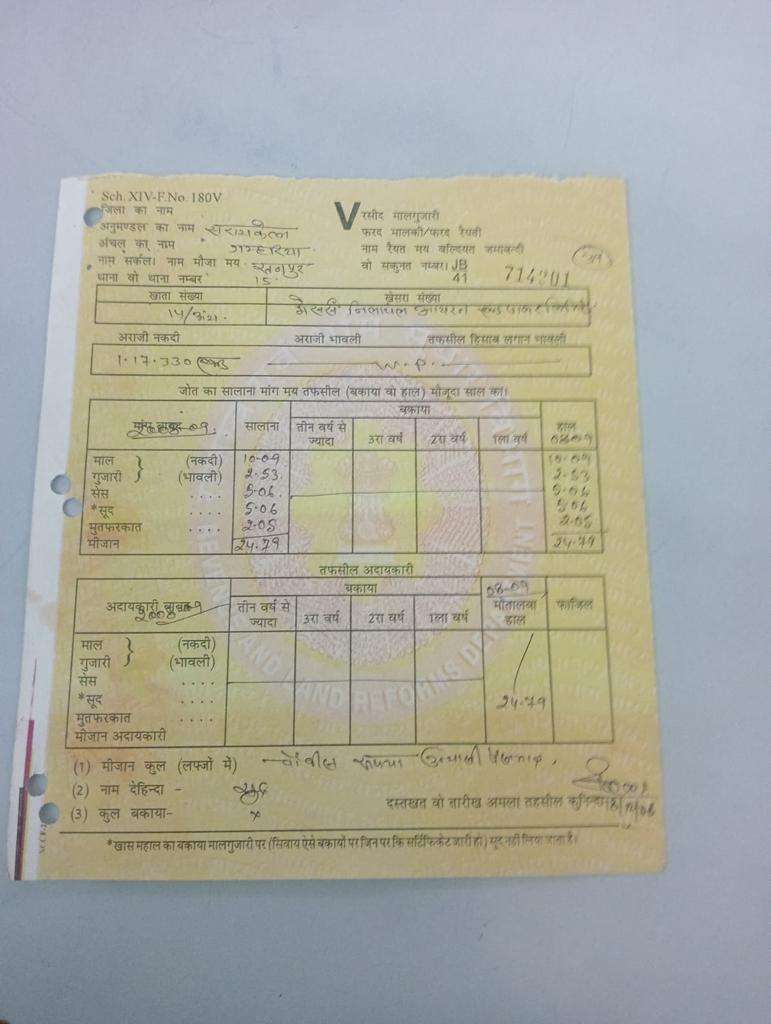 Sch. XIV-F.No. 180V
जिला का नाम
V रसीद मालगुजारी
अनुमण्डल का नाम सरायकेला
फरद मालकी/फरद रैयती
अंचल का नाम गम्हरिया
नाम रैयत मय वल्दियत जमाबन्दी
नाम सर्कल। नाम मौजा मय
वो सकुनत नम्बर। JB 41 714201
थाना वो थाना नम्बर 15
खाता संख्या खेसरा संख्या
14/अंश. मेसर्स निलाचल आयरन एण्ड पावर
अराजी नकदी अराजी भावली तफसील हिसाब लगान भावली
1.17.330
जोत का सालाना मांग मय तफसील (बकाया वो हाल) मौजूदा साल का।
बकाया
सालाना तीन वर्ष से ज्यादा 3रा वर्ष 2रा वर्ष 1ला वर्ष हाल 08-09
माल (नकदी) 10-09 10-09
गुजारी (भावली) 2-53 2-53
सेस .... 5-06 5-06
*सूद .... 5-06 5-06
मुतफरकात .... 2-05 2-05
मीजान 24-79 24-79
तफसील अदायकारी
बकाया 08-09
अदायकारी बाबत तीन वर्ष से ज्यादा 3रा वर्ष 2रा वर्ष 1ला वर्ष मोतालबा हाल फाजिल
माल (नकदी)
गुजारी (भावली)
सेस ....
*सूद .... 24-79
मुतफरकात ....
मीजान अदायकारी
(1) मीजान कुल (लफ्जों में) चौबीस रूपया उन्यासी
(2) नाम देहिन्दा -
दस्तखत वो तारीख अमला तहसील कुनिन्दा
(3) कुल बकाया- ×
*खास महाल का बकाया मालगुजारी पर (सिवाय ऐसे बकायों पर जिन पर कि सर्टिफिकेट जारी हो) सूद नहीं लिया जाता है।